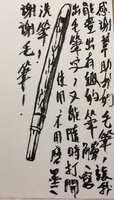 感謝幫助我的毛筆，讓我
能畫出有趣的筆觸，寫
出毛筆字，又能隨時打開
使用，不用磨墨
洗筆！
謝謝毛筆！